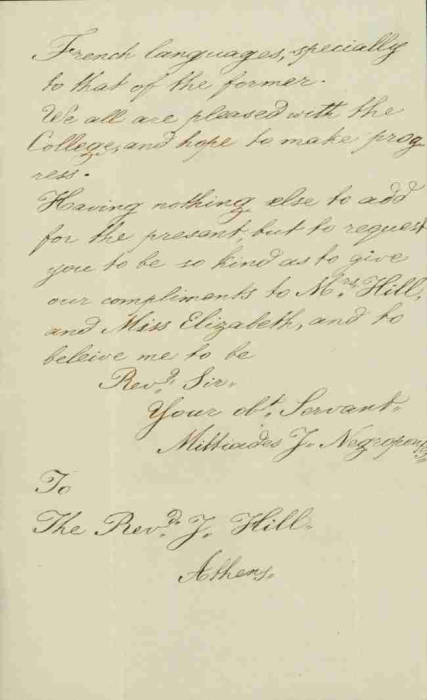 French languages, specially
to that of the former.
We all are pleased with the
College, and hope to make prog
ress.
Having nothing else to add
for the present, but to request
you to be so kind as to give
our compliments to Mrs. Hill,
and Miss Elizabeth, and to
beleive me to be
Revd. Sir.
Your obt. Servant.
Miltiades J. Negropon
To
The Revd. J. Hill.
Athens.